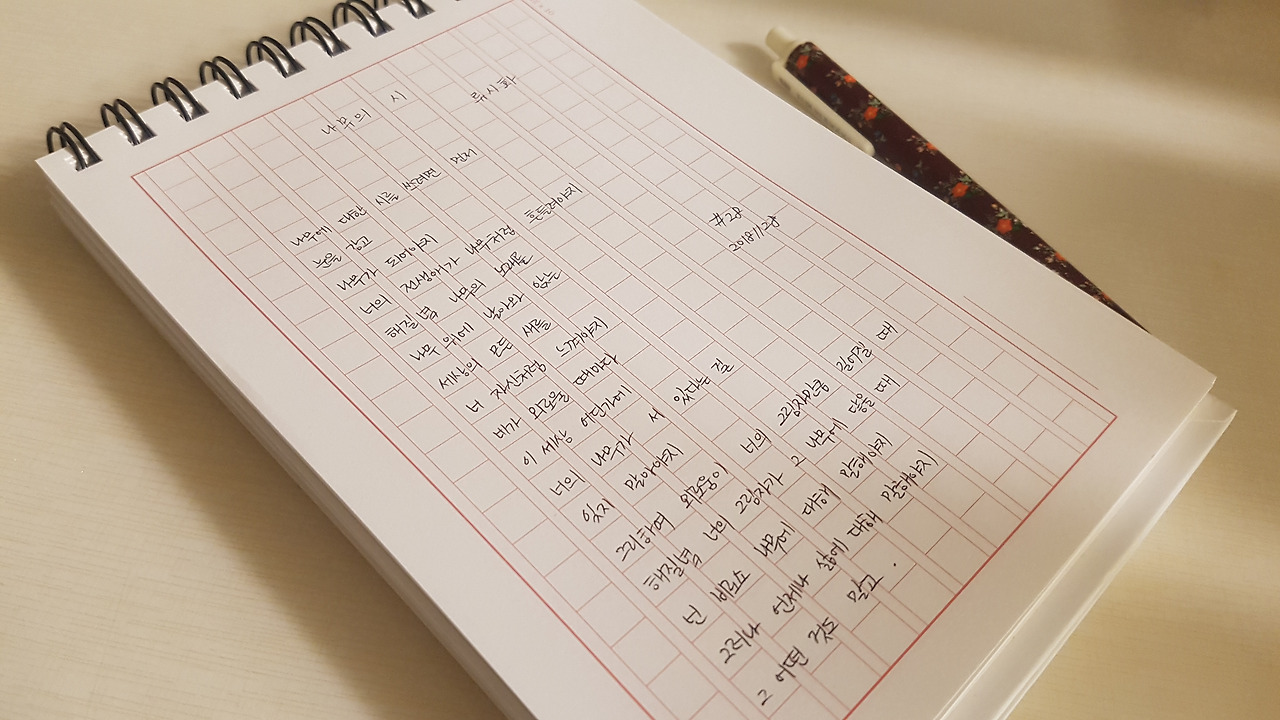 나무의 시 류시화
나무에 대한 시를 쓰려면 먼저
눈을 감고
나무가 되어야지
너의 전생애가 나무처럼 흔들려야지
해질녘 나무의 노래를
나무 위에 날아와 앉는
세상의 모든 새를
너 자신처럼 느껴야지
네가 외로울 때마다
이 세상 어딘가에
너의 나무가 서 있다는 걸
잊지 말아야지
그리하여 외로움이 너의 그림자만큼 길어질 때
해질녘 너의 그림자가 그 나무에 닿을 때
넌 비로소 나무에 대해 말해야지
그러나 언제나 삶에 대해 말해야지
그 어떤 것도 말고.
#28
20181128